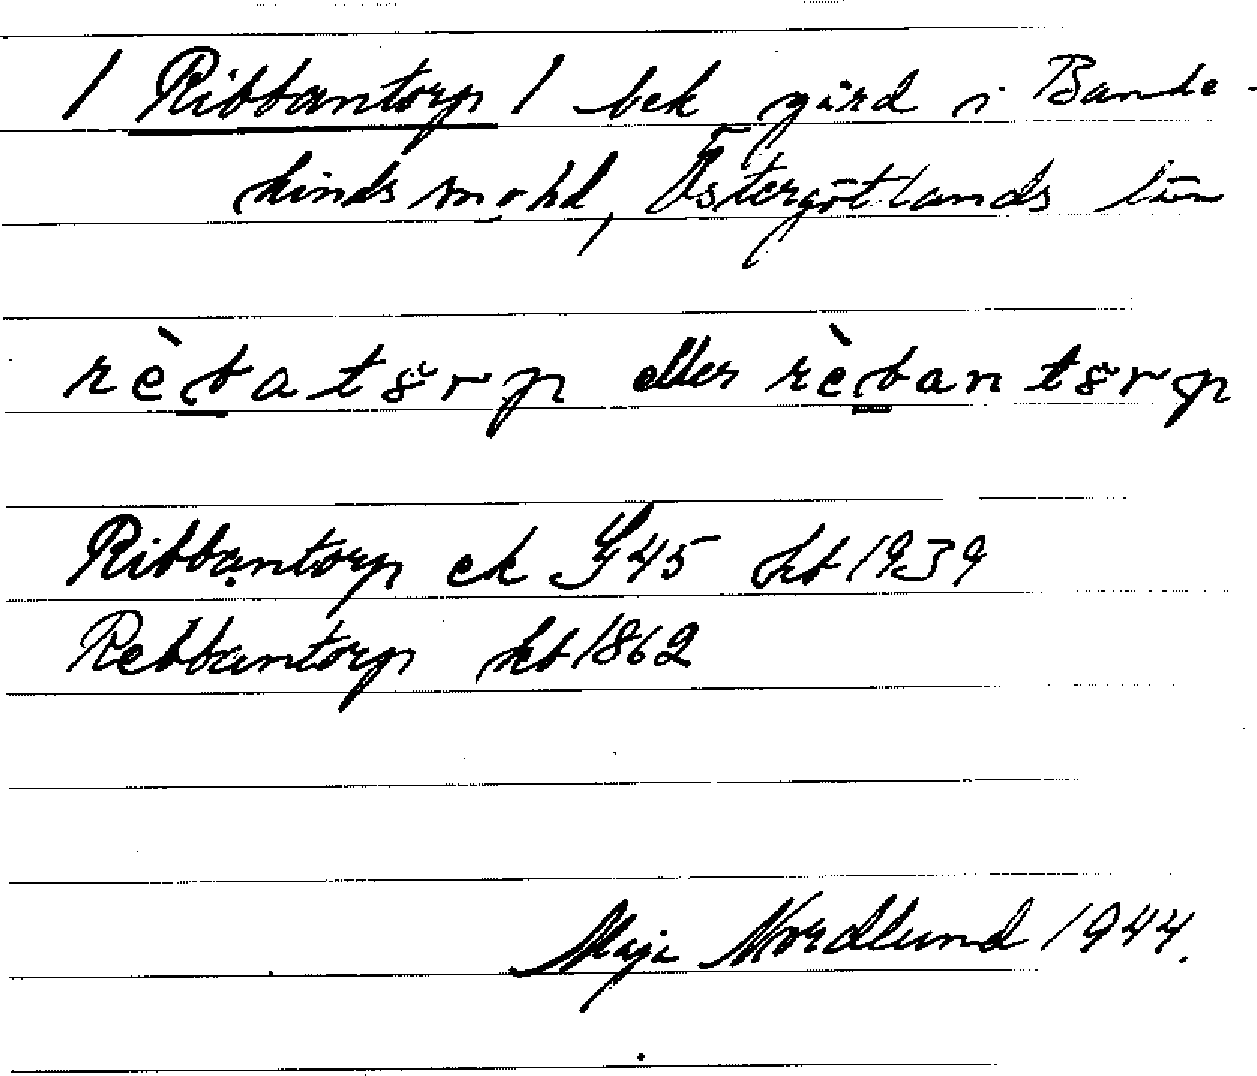 / Ribbantorp / bek gård i Bande-
kinds mohd, Östergötlands län
rèbatørp eller rèbantørp
Ribbantorp ek 45 hb 1939
Rebbantorp hb 1862
Maja Nordlund 1944.